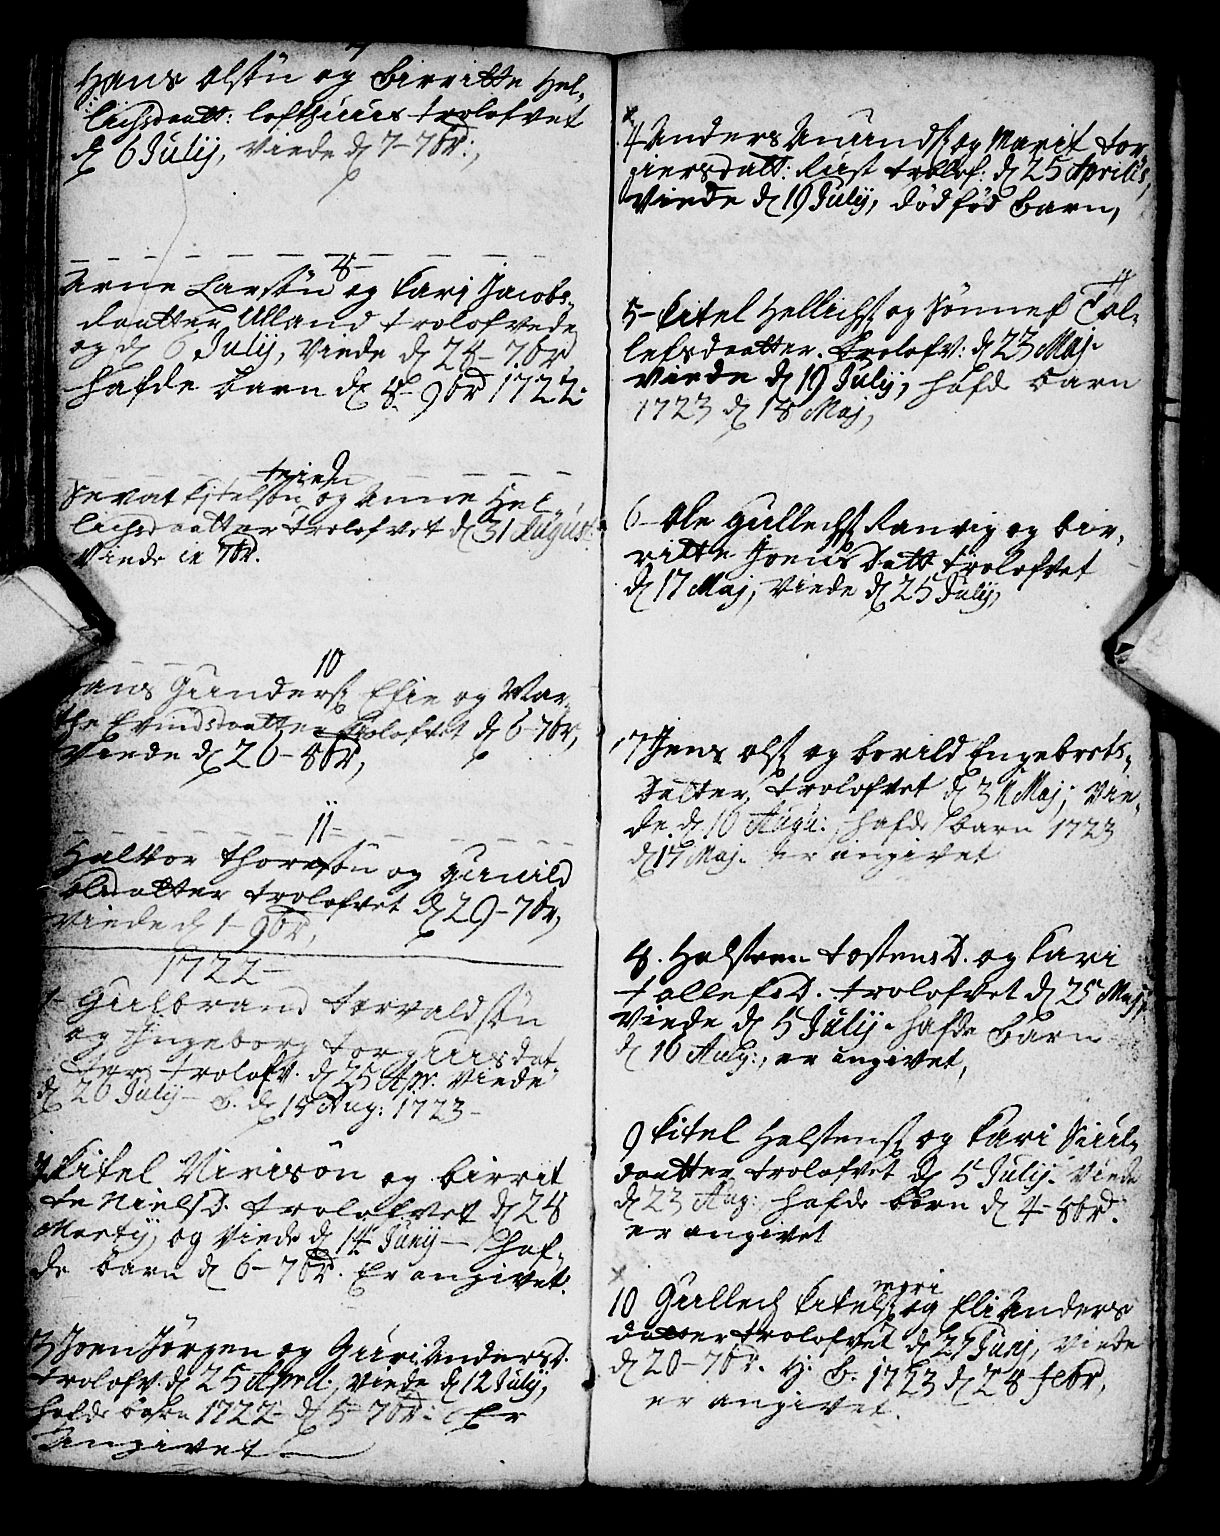 7
Hans Olsön og Birritte Hel-
lichsdaatt: Lofthuus trolofvet
d 6 Julij, Viede d 7-7br:,
8
Arne Larsön og Kari Jacobs-
daatter Ulland trolofvede
og d 6 Julij, Viede d 28-7br,
hafde barn d 8-9br 1722.
Sevat Kitelsön og Anne Hel-
lichsdaatter trolofvet d 31 August:
Viede in 7br.
10
Hans Gunders Efie og Mar-
the Evindsdaatter trolofvet d 6-7br,
Viede d 20-8br,
11
Halvor Thorsön og Gunild
Olsdatter trolofvet d 29-7br,
Viede d 1-9br,
1722
1- Gulbrand Torvaldsön
og Ingeborg Torgiusdat-
ter trolofv. d 25 Apr. Viede
d 26 Julij- B. d 18 Aug: 1723-
2 Kitel Nirisön og birrit
te Nielsd. trolofvet d 28
Martij, og Viede d 14 Junij- Haf-
de barn d 6-7br. Er angivet.
3 Joen Jörgen og Guri Andersd.
trolofv. d 25 April., Viede d 12 Julij,
hafde barn 1722 d 5-7br: Er
Angivet
4 Anders Amunds og Marit Tor
giersdatt: Rust trolof: d 25 Aprilis,
Viede d 19 Julij, dödfød barn,
5- Kitel Hellichs og Sønnef Tol-
lefsdaatter. trolofv: d 23 Maj.
Viede d 19 Julij, hafde barn
1723 d 18 Maj,
6- Ole Gullechs Ranvig og bir-
ritte Joensdatt trolofvet
d 17 Maj, Viede d 25 Julij,
7 Jens Ols og borild Engebrets-
Datter, trolofvet d 31 Maj; Vie-
de d 16 Augu:, hafde barn 1723
d 17 Maj. er angivet
8. Halsteen Tostensd. og Kari
Tollefsd. trolofvet d 25 Maj,
Viede d 5 Julij. hafde Barn
d 16 Aug:, er angivet,
9 Kitel Halstens og Kari Siul-
daatter trolofvet d 5 Julij. Viede
d 23 Aug: hafde børn d 4-8br.
er angivet
10 Gullech Kitels og Eli Anders
datter trolofvet d 27 Junj, Viede
d 20-7br. H. B. 1723 d 28 febr,
er angivet.